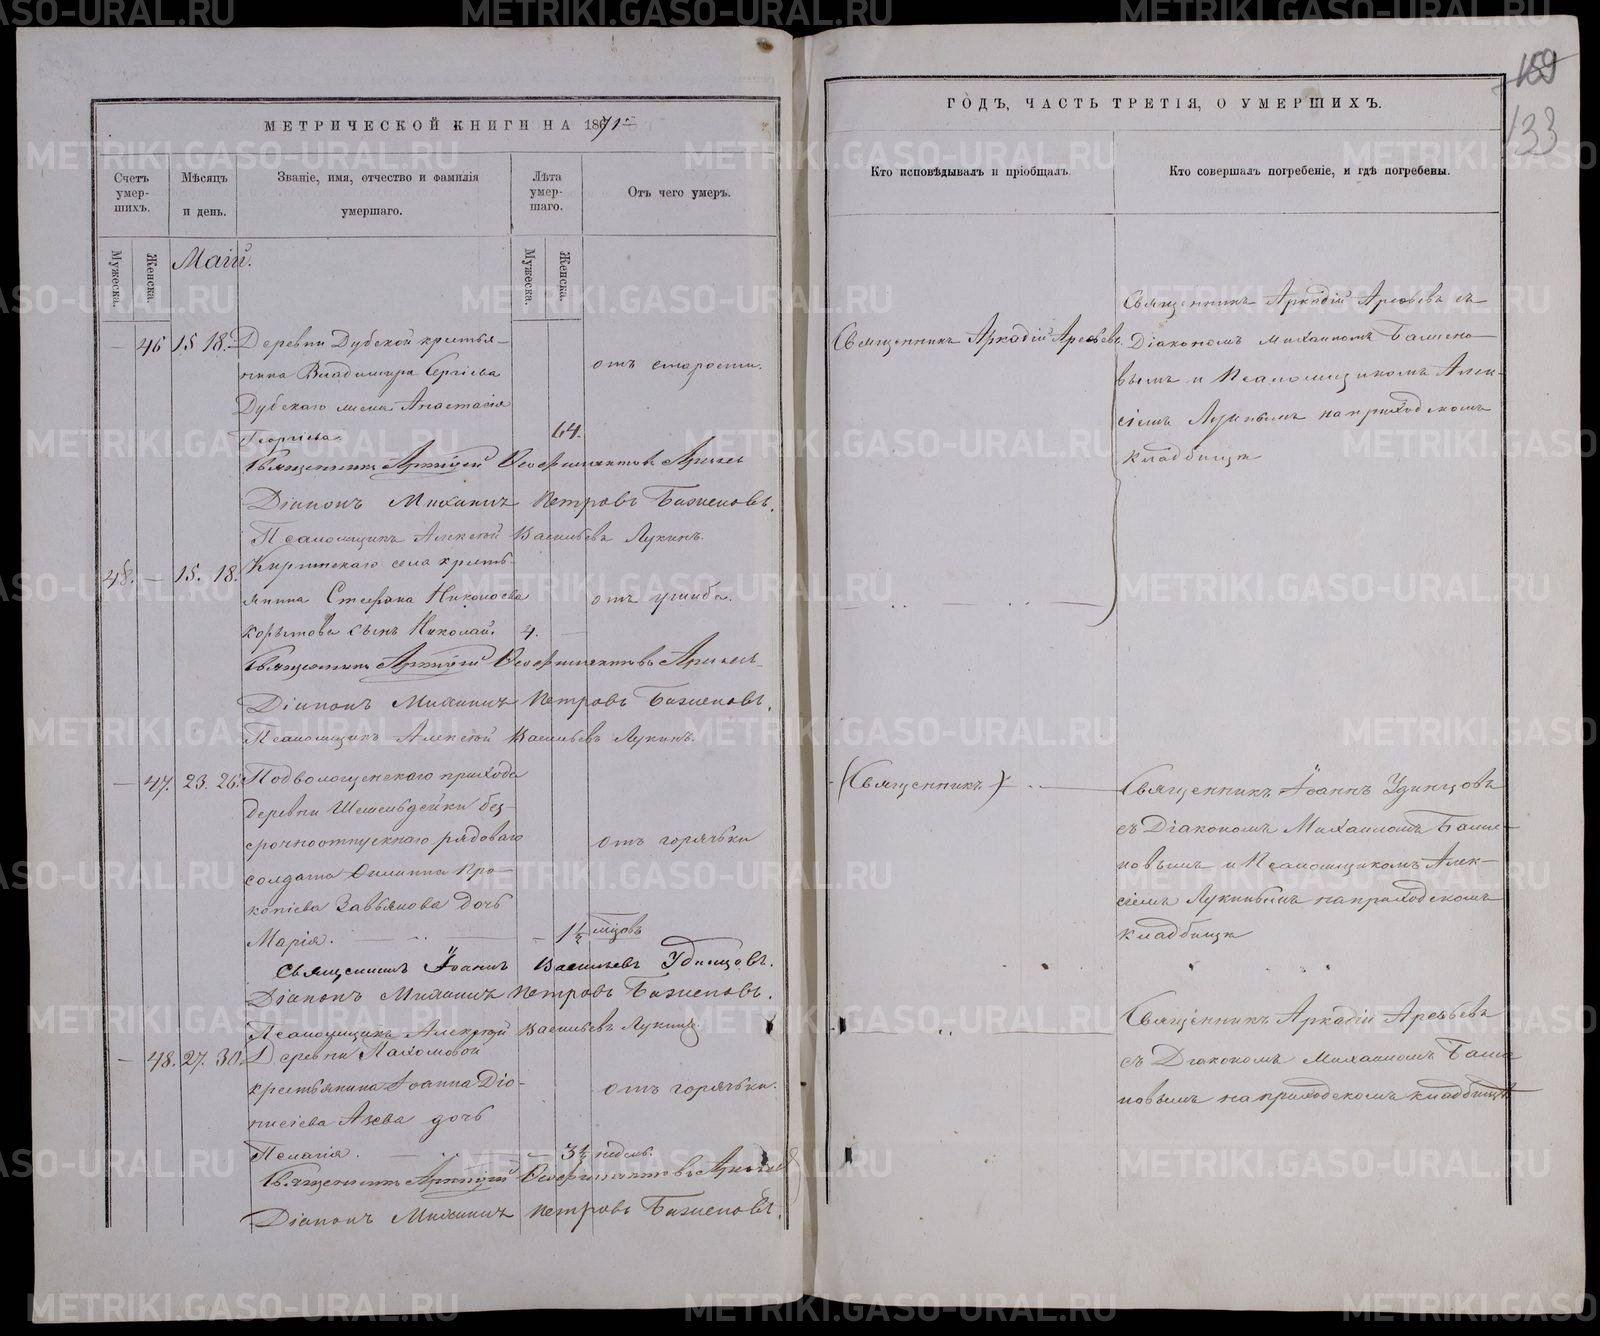 159
133
МЕТРИЧЕСКОЙ КНИГИ НА 1871
Счетъ умер-шихъ.
Мѣсяцъ и день.
Званіе, имя, отчество и фамилія умершаго.
Лѣта умер-шаго.
Отъ чего умеръ.
Мужеска.
Женска.
Мужеска.
Женска.
Маій.
46 15 18. Деревни Дубской крестья-
нина Владимира Сергіева
от старости.
Дубскаго жена Анастасія
Георгіева 64.
Священникъ Аркадій
Діаконъ Михаилъ Петровъ Баженовъ.
Псаломщикъ Алексій Васильевъ Лукинъ.
48. — 15. 18. Киргинскаго села кресть-
янина Стефана Николаева
отъ ушиба.
сынъ Николай. 4.
Священникъ Аркадій
Діаконъ Михаилъ Петровъ Баженовъ.
Псаломщикъ Алексій Васильевъ Лукинъ.
— 47. 23. 26. Подволошенскаго прихода
деревни без-
срочноотпускнаго рядоваго
отъ горячки
солдата Филиппа Про-
копіева Завьялова дочь
Марія. — 1½ мѣсяцовъ
Священникъ Іоаннъ Васильевъ Удинцовъ.
Діаконъ Михаилъ Петровъ Баженовъ.
Псаломщикъ Алексій Васильевъ Лукинъ.
— 48. 27. 30. Деревни Пахомовой
крестьянина Іоанна Діо-
отъ горячки.
нисіева дочь
Пелагія. — 3½ недель.
Священникъ Аркадій
Діаконъ Михаилъ Петровъ Баженовъ.
ГОДЪ, ЧАСТЬ ТРЕТІЯ, О УМЕРШИХЪ.
Кто исповѣдывалъ и пріобщалъ.
Кто совершалъ погребеніе, и гдѣ погребены.
Священникъ Аркадій Арефьевъ
Священникъ Аркадій Арефьевъ съ
Діакономъ Михаиломъ Бажено-
вымъ и Псаломщикомъ Алек-
сіемъ Лукинымъ на приходскомъ
кладбищѣ
(Священникъ)
Священникъ Іоаннъ Удинцовъ
съ Діакономъ Михаиломъ Баже-
новымъ и Псаломщикомъ Алек-
сіемъ Лукинымъ на приходскомъ
кладбищѣ
Священникъ Аркадій Арефьевъ
съ Діакономъ Михаиломъ Баже
новымъ на приходскомъ кладбищѣ
METRIKI.GASO-URAL.RU